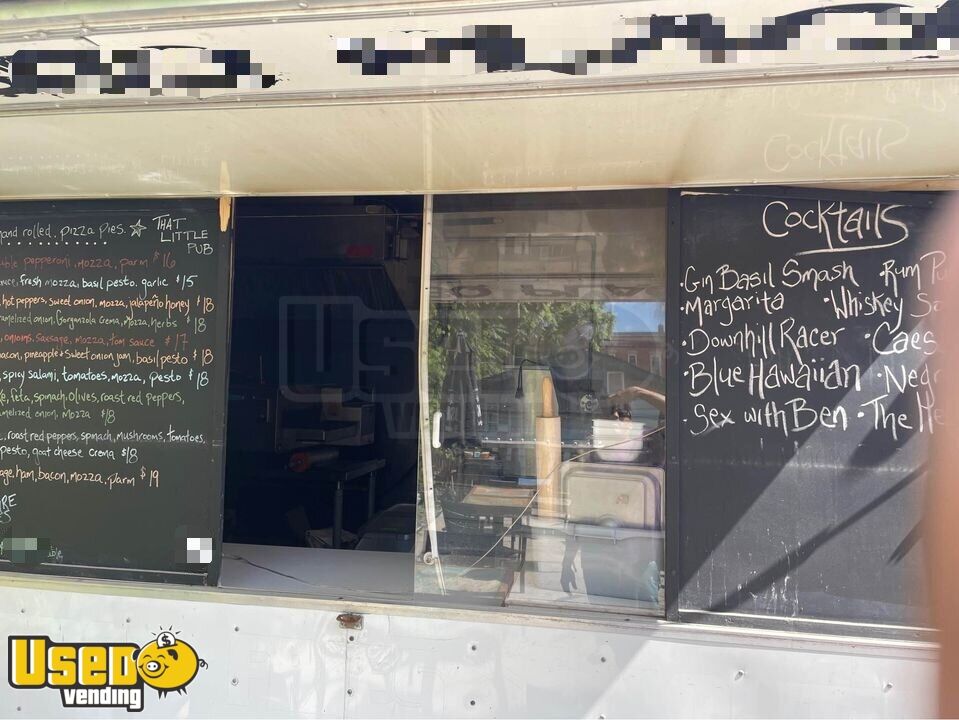 hand rolled. pizza pies.
THAT
LITTLE
PUB
pepperoni, mozza, parm $16
fresh mozza, basil pesto. garlic $15
hot peppers, sweet onion, mozza, jalapeño honey $18
onion, Gorgonzola Crema, Mozza, herbs $18
onions, Sausage, mozza, tom sauce $17
bacon, pineapple + Sweet onion jam, basil pesto $18
spicy salami, tomatoes, mozza, pesto $18
feta, spinach, Olives, roast red peppers,
onion, mozza $18
roast red peppers, spinach, mushrooms, tomatoes,
pesto, goat cheese crema $18
ham, bacon, mozza, parm $19
Cocktails
Gin Basil Smash · Rum
Margarita · Whiskey
Downhill Racer
Blue Hawaiian
Sex with Ben · The
USED
VENDING